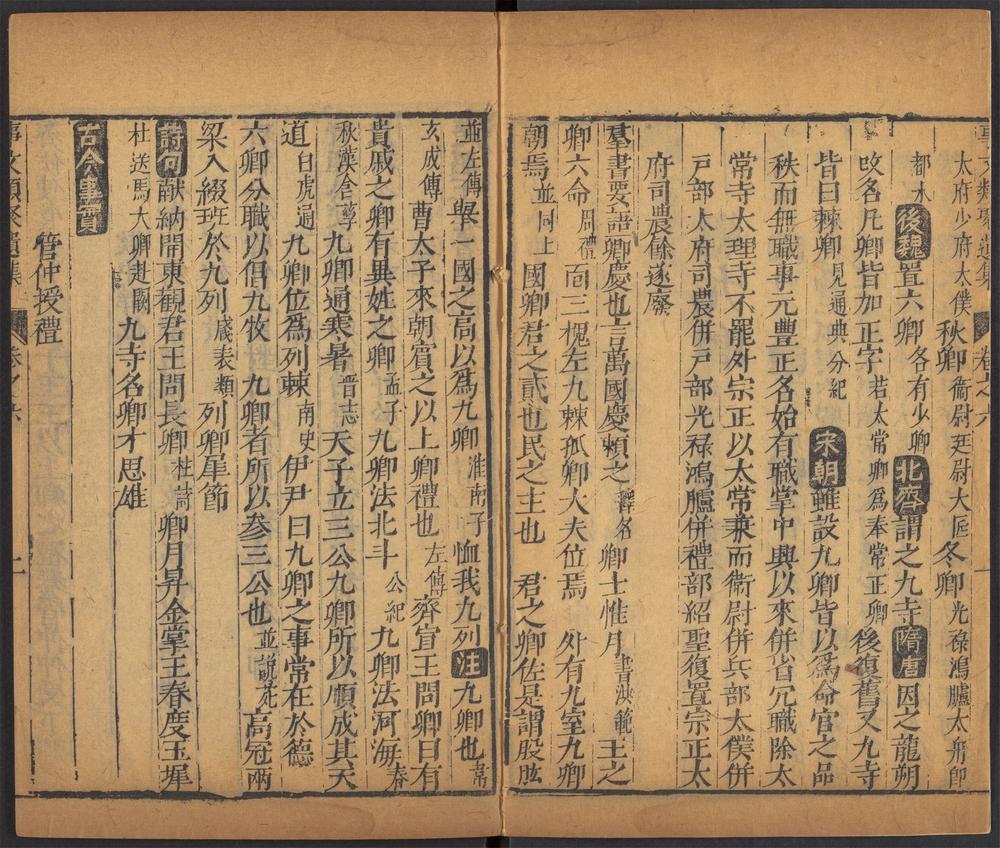 事文類聚遺集 卷之六
太府少府太僕秋卿衞尉廷尉大匠冬卿光祿鴻臚太府即
都水後魏置六卿各有少卿北齊謂之九寺隋唐因之龍朔
改名凡卿皆加正字若太常卿爲奉常正卿後復舊又九寺
皆曰棘卿見通典分紀宋朝雖設九卿皆以爲命官之品
秩而無職事元豐正名始有職掌中興以來併省冗職除太
常寺太理寺不罷外宗正以太常兼而衞尉併兵部太僕併
戸部太府司農併戸部光祿鴻臚併禮部紹聖復置宗正太
府司農餘遂廢
羣書要語卿慶也言萬國慶頼之釋名卿士惟月書洪範王之
卿六命周禮面三槐左九棘孤卿大夫位焉 外有九室九卿
朝焉並同上國卿君之貳也民之主也 君之卿佐是謂股肱
並左傳舉一國之高以爲九卿淮南子恤我九列注九卿也韋
玄成傳曹太子來朝賓之以上卿禮也左傳齊宣王問卿曰有
貴戚之卿有異姓之卿孟子九卿法北斗公紀九卿法河海春
秋漢含孳九卿通寒暑晉志天子立三公九卿所以順成其天
道白虎通九卿位爲列棘南史伊尹曰九卿之事常在於德
六卿分職以倡九牧 九卿者所以參三公也並説苑高冠兩
梁入綴班於九列咸表類列卿星節
詩句献納開東観君王問長卿杜詩卿月昇金掌王春度玉墀
杜送馬大卿赴闕九寺名卿才思雄
古今事實
管仲授禮
事文類聚遺集 卷之六 二